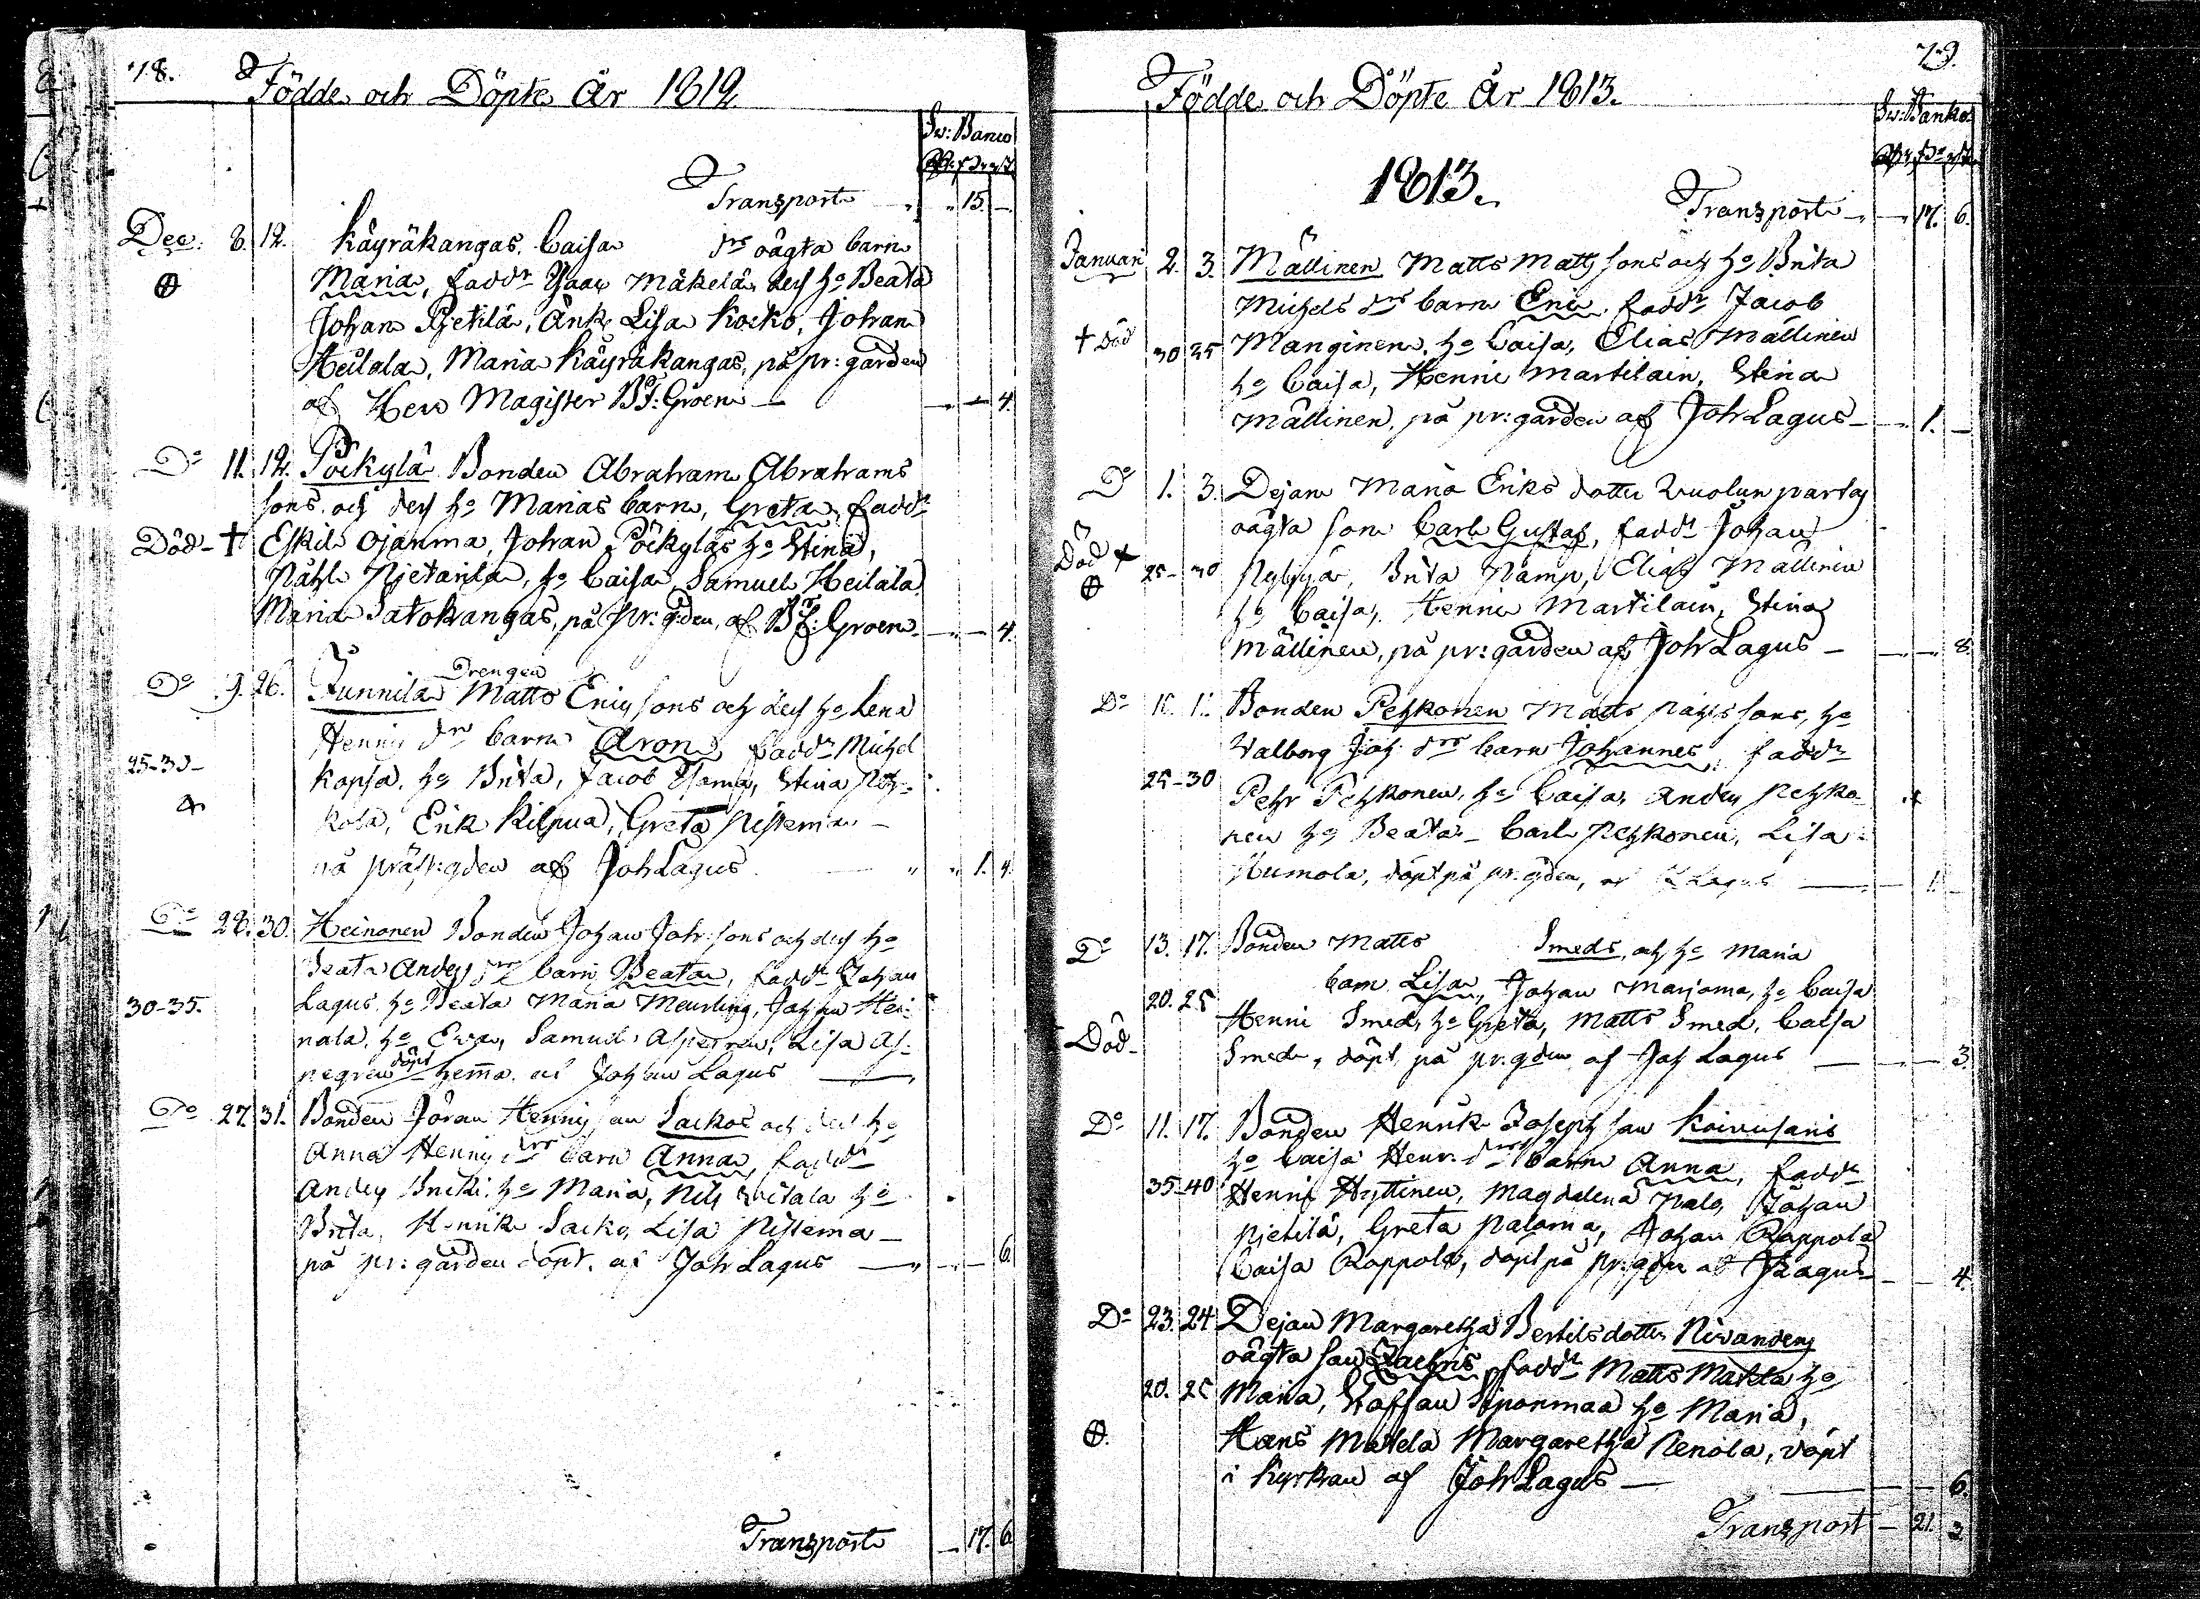 78.
Födde och Döpte År 1812
Sv: Banco
Transport „ „ 15. —
Dec: 8. 12. Käyräkangas Caisa drs oägta barn
Maria, faddr Isaac Mäkelä, desf ho Beata
Johan Pjetilä, Änk. Lisa Kocko, Johan
Heilala, Maria Käyräkangas, på pr: gården
af Herr Magister B:J: Groen — 4.
Do 11. 12. Pöckylä Bonden Abraham Abrahams
sons och desf ho Marias barn, Greta, faddr
Död - † Eskil Ojanma, Johan Pöckyläs ho Stina,
ho Caisa, Samuel Heilala
Maria Satokangas, på pr: gden, af B:J: Groen — 4.
Drengen
Do 9. 26. Junnila Matts Ericssons och desf ho Lena
Henrics drs barn Aron, faddr Michel
25-30 — Kopsa, ho Brita, Jacob Stina
kola, Erik Kilpua, Greta Nistema —
på präst:gden af Joh Lagus „ „ 1. 4.
Do 28. 30. Heinonen Bonden Johan Joh: sons och desf ho
Beata Anders drs barn Beata, faddr Johan
30-35. Lagus, ho Beata Maria Meurling, Johan Hei-
nala, ho Eva, Samuel Aspegren, Lisa As-
döpt
pegren hemma af Johan Lagus —
Do 27. 31. Bonden Jöran Henrics son Sackos och desf ho
Anna Henrics drs barn Anna, faddr
Anders Bricki, ho Maria, Nils ho
Brita, Henrik Sacko, Lisa Nistema —
på pr: gården döpt. af Joh Lagus — 6.
Transport — 17. 6
79.
Födde och Döpte År 1813.
Sv: Banko
1813.
Transport — 17. 6.
Januari 2. 3. Mällinen Matts Matts sons och ho Brita
Michels drs barn Eric, faddr Jacob
† Död 30 35 Manginen, ho Caisa, Elias Mällinen
ho Caisa, Henric Martilain, Stina
Mällinen, på pr: gården af Joh Lagus — 1. —
Do 1. 3. Dejan Maria Eriks dotter
oägta son Carl Gustaf, faddr Johan
Död † 25 - 30 Brita Elias Mällinen
ho Caisa, Henric Martilain, Stina
Mällinen, på pr: gården af Joh Lagus — 8.
Do Bonden Pehkonen Matts sons, ho
Valborg Joh. drs barn Johannes, faddr
25-30 Pehr Pehkonen, ho Caisa, Anders Pehko-
nen ho Beata — Carl Pehkonen, Lisa
Humola, döpt på pr. gden, af J Lagus — 1. —
Do 13. 17. Bonden Matts Smeds, och ho Maria
barn Lisa, Johan Marjama, ho Caisa
20. 25 Henric Smed, ho Greta, Matts Smed, Caisa
Död - Smed, döpt på pr. gden af Joh Lagus — 3.
Do 11. 17. Bonden Henrik Joseph son Koivusaris
ho Caisa Henr. drs barn Anna, faddr
35-40 Henric Hyttinen, Magdalena Palo, Johan
Pjetilä, Greta Paloma, Johan Rappola
Caisa Rappola, döpt på pr: gden af J Lagus — 4.
Do 23. 24 Dejan Margaretha Bertils dotter
oägta son Zachris faddr Matts Matela ho
20. 25 Maria, Staffan Siponmaa ho Maria,
Hans Matela Margaretha Renola, döpt
i Kyrkan af Joh Lagus — 6.
Transport — 21. 3